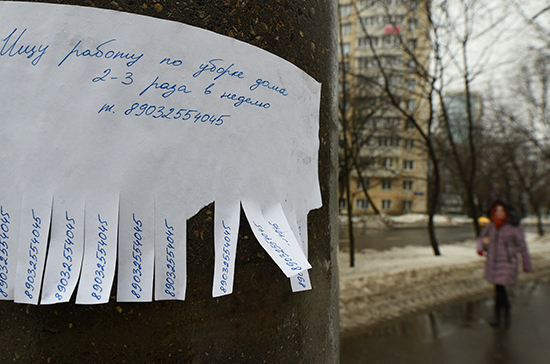 Ищу работу по уборке дома
2-3 раза в неделю
т. 89032554045
89032554045
89032554045
89032554045
89032554045
89032554045
89032554045
89032554045